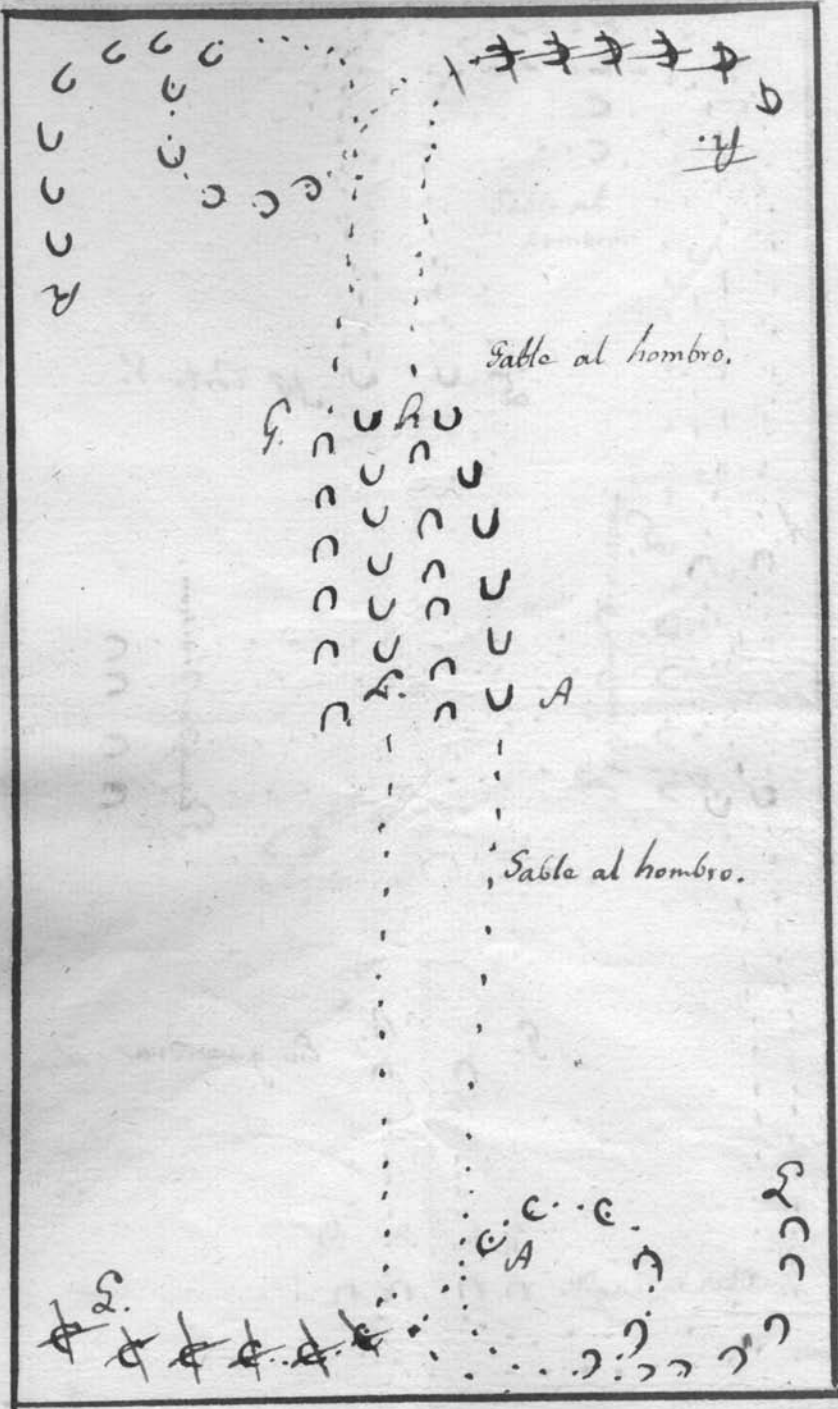 R.
R
Sable al hombro.
G. h
L. A
Sable al hombro.
L
A
L.